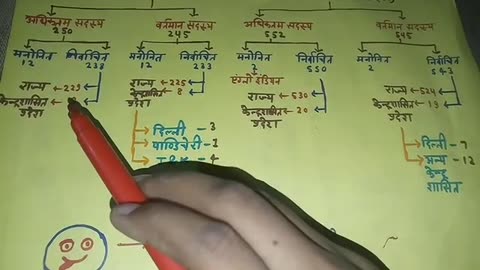 अधिकतम सदस्य
250
वर्तमान सदस्य
245
अधिकतम सदस्य
552
वर्तमान सदस्य
545
मनोनित
12
निर्वाचित
238
मनोनित
12
निर्वाचित
233
मनोनित
2
निर्वाचित
550
मनोनित
2
निर्वाचित
543
राज्य ← 229
केन्द्रशासित ←
प्रदेश
राज्य ← 225
केन्द्रशासित ← 8
प्रदेश
दिल्ली - 3
पाण्डिचेरी - 1
4
एंग्लो इंडियन
राज्य ← 530
केन्द्रशासित ← 20
प्रदेश
राज्य ← 524
केन्द्रशासित ← 19
प्रदेश
दिल्ली - 7
अन्य - 12
केन्द्र
शासित